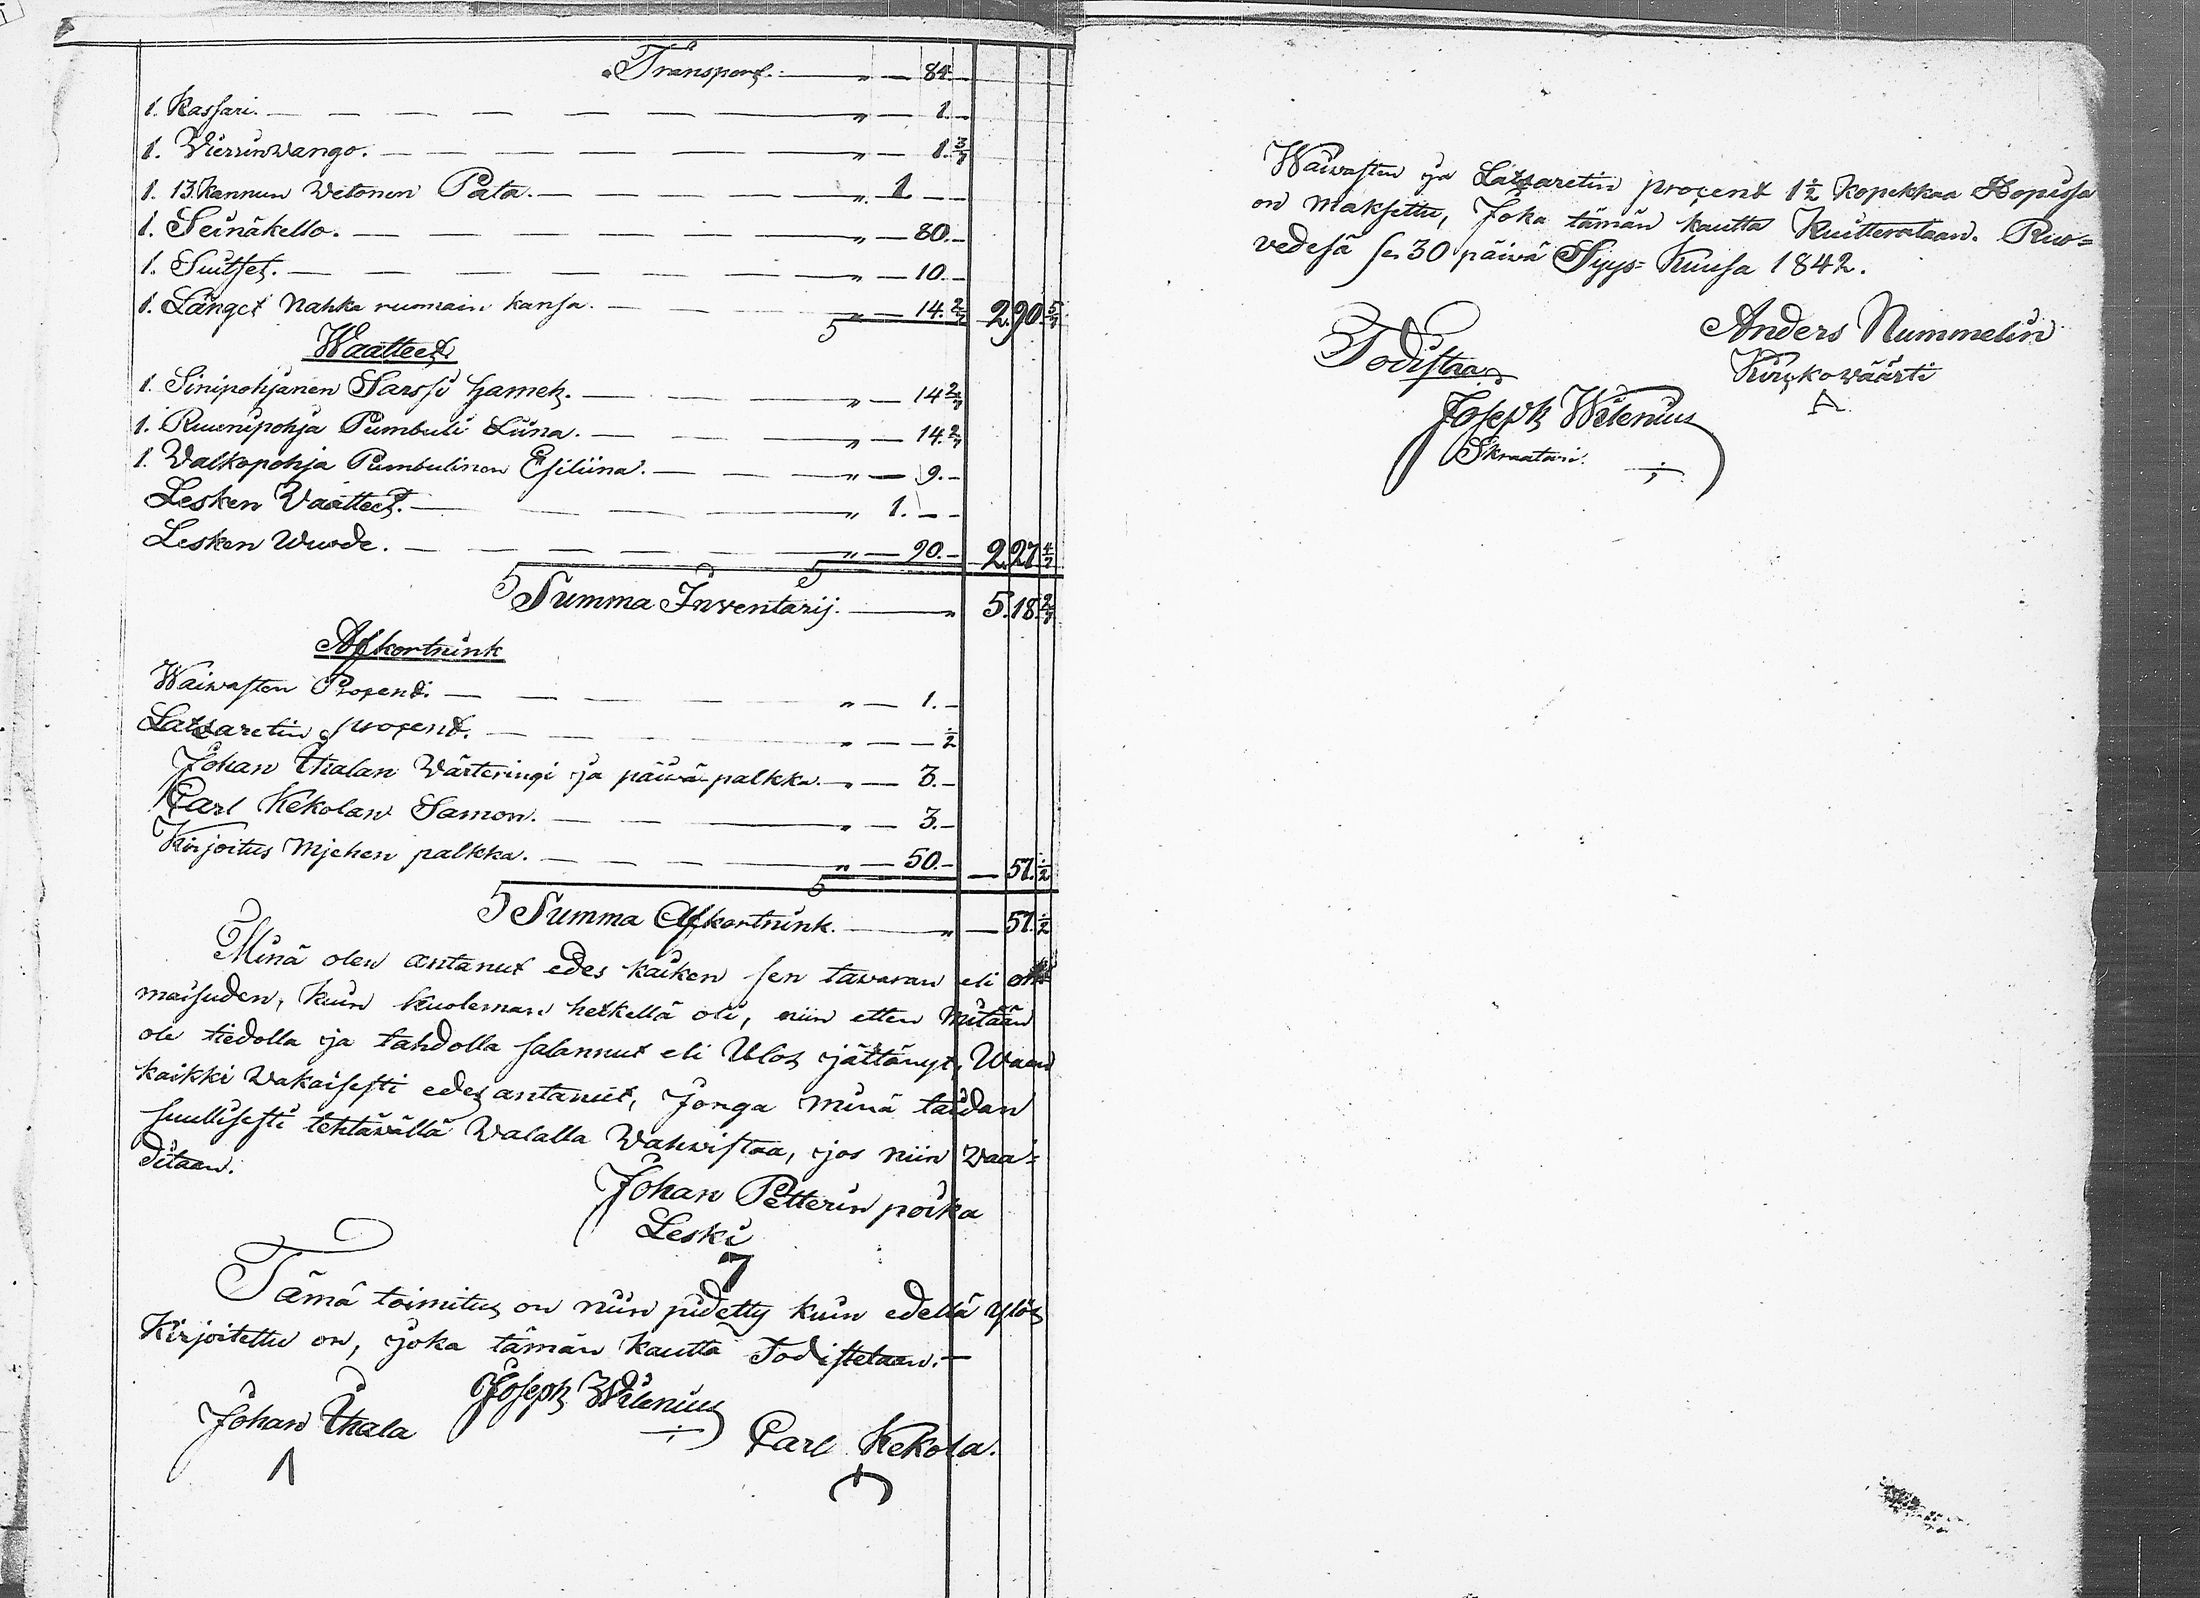 Transport. — „ — 84 —
1. Kassari. — „ — 1. —
1. Vierrinwango. — „ — 1. 3/7
1. 13. kannun Wetonen Pata. — „ 1 — —
1. Seinäkello. — „ — 80. —
1. Suitset. — „ — 10. —
1. Länget Nahka ruomain kansa. — „ — 14. 2/7 2. 90. 5/7
Waatteet
1. Sinipohjanen Sarssi Hamek. — „ — 14 2/7
1. Ruunipohja Pumbuli Liina. — „ — 14. 2/7
1. Valkopohja Pumbulinen Esiliina. — „ — 9. —
Lesken Vaatteet. — „ 1. — —
Lesken Wuode. — „ — 90. — 2. 27 4/7
Summa Inventarij. — „ 5. 18. 2/7
Afkortnink
Waiwasten Procent. — „ — 1. —
Latzaretin procent. — „ — — 1/2
Johan Ihalan Wärteringi ja päiwä palkka. — „ — 3. —
Carl Kekolan Samon. — „ — 3. —
Kirjoitus Mjehen palkka. — „ — 50. — — 57. 1/2
Summa Afkortnink. — „ — 57. 1/2
Minä olen antanut edes kaiken sen tawaran eli
maisuden, kuin kuoleman hetkellä oli, niin etten mitään
ole tiedolla ja tahdolla salannut eli Ulos jättänyt, Waan
kaikki Wakaisesti edes antanut, Jonga minä taidan
suullisesti tehtäwällä Walalla Wahwistaa, jos niin Vaa=
ditaan.
Johan Petterin poika
Leski
Tämä toimitus on niin pidetty kuin edellä Ylös
Kirjoitettu on, joka tämän kautta Todistetaan. —
Joseph Wilenius
Johan Ihala Carl Kekola.
Waiwasten ja Latzaretin procent 1 1/2 kopekkaa Hopiisa
on maksettu, Joka tämän kautta Kuitterataan. Ruo=
vedesä se 30 päiwä Syys= Kuusa 1842.
Anders Nummelin
Kirckowäärti
Todistaa
Joseph Wilenius
Skraatari.